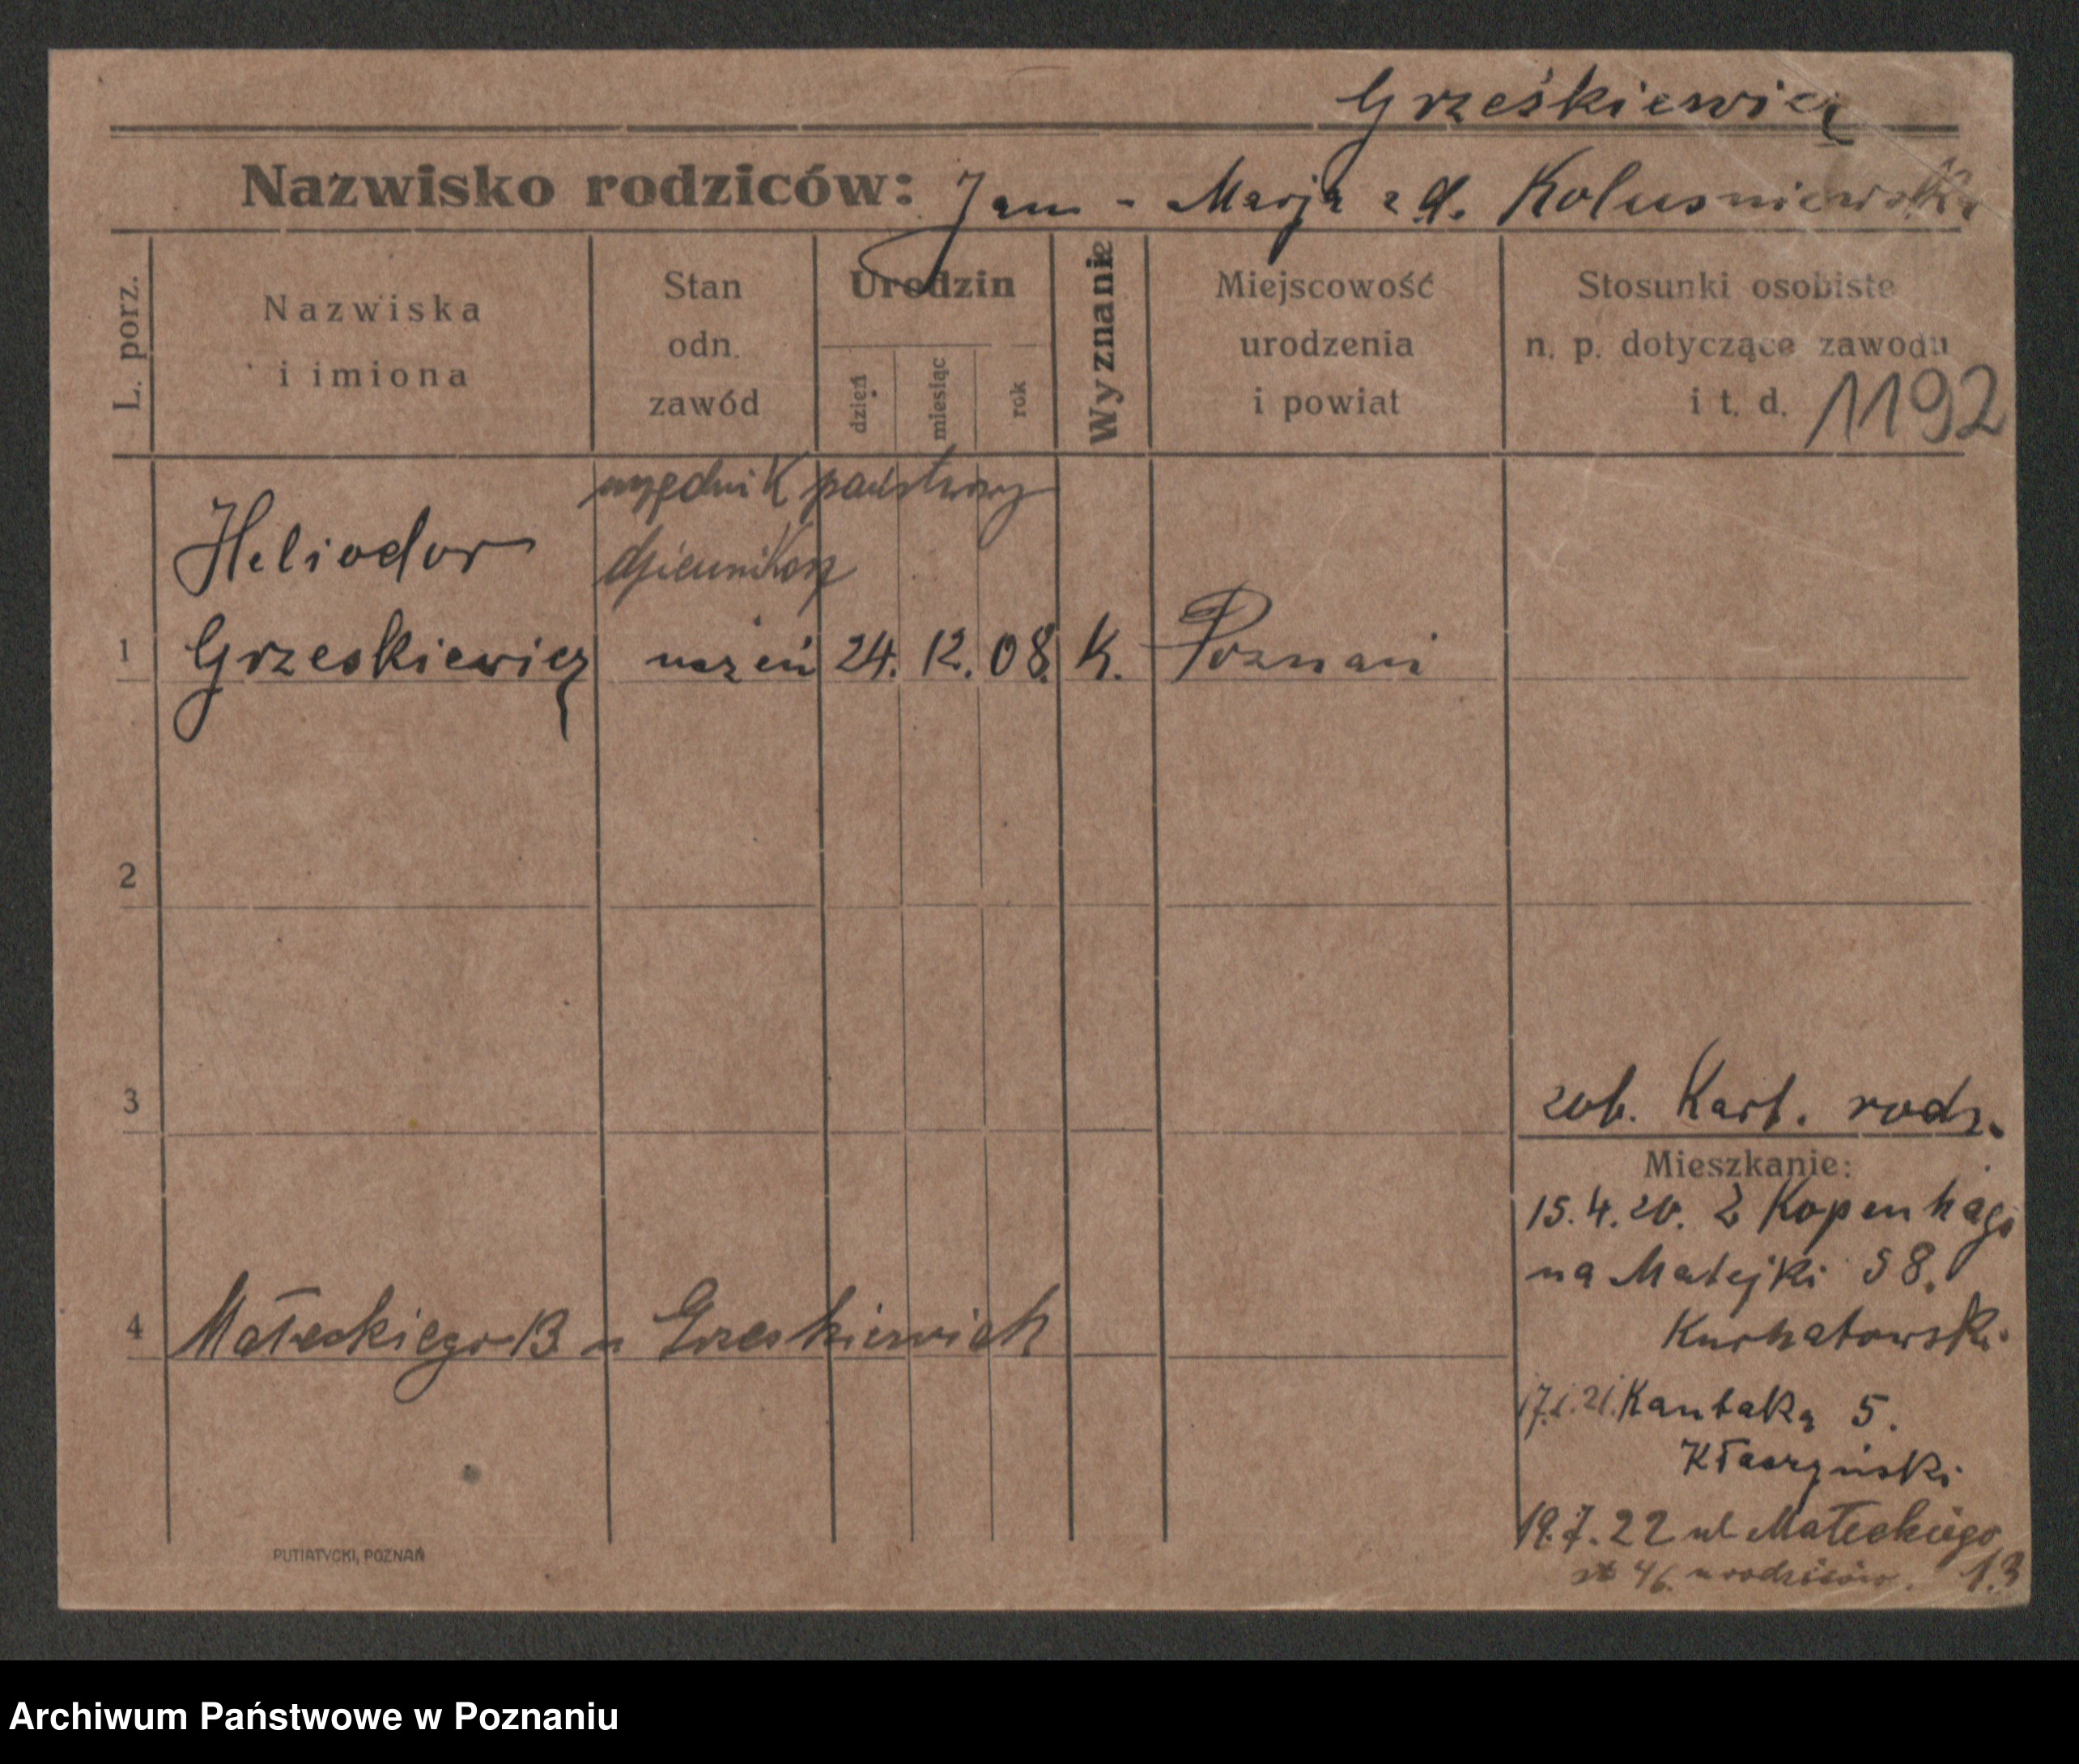 Grześkiewicz
Nazwisko rodziców: Jan - Marja z d. Kolusniewska
L. porz.
Nazwiska
i imiona
Stan
odn.
zawód
Urodzin
dzień
miesiąc
rok
Wyznanie
Miejscowość
urodzenia
i powiat
Stosunki osobiste
n. p. dotyczące zawodu
i t. d. 1192
urzędnik państwowy
Heliodor
dziennikarz
1 Grzeskiewicz uczeń 24. 12. 08. K. Poznań
2
3
zob. Kart. rodz.
Mieszkanie:
15.4.20. Z Kopenhagi
na Matejki 58.
4 Małeckiego 13 u Greskiewich
17.1.21. Kantaka 5.
19.7.22 ul Małeckiego
u rodziców. 13
PUTIATYCKI, POZNAŃ
Archiwum Państwowe w Poznaniu